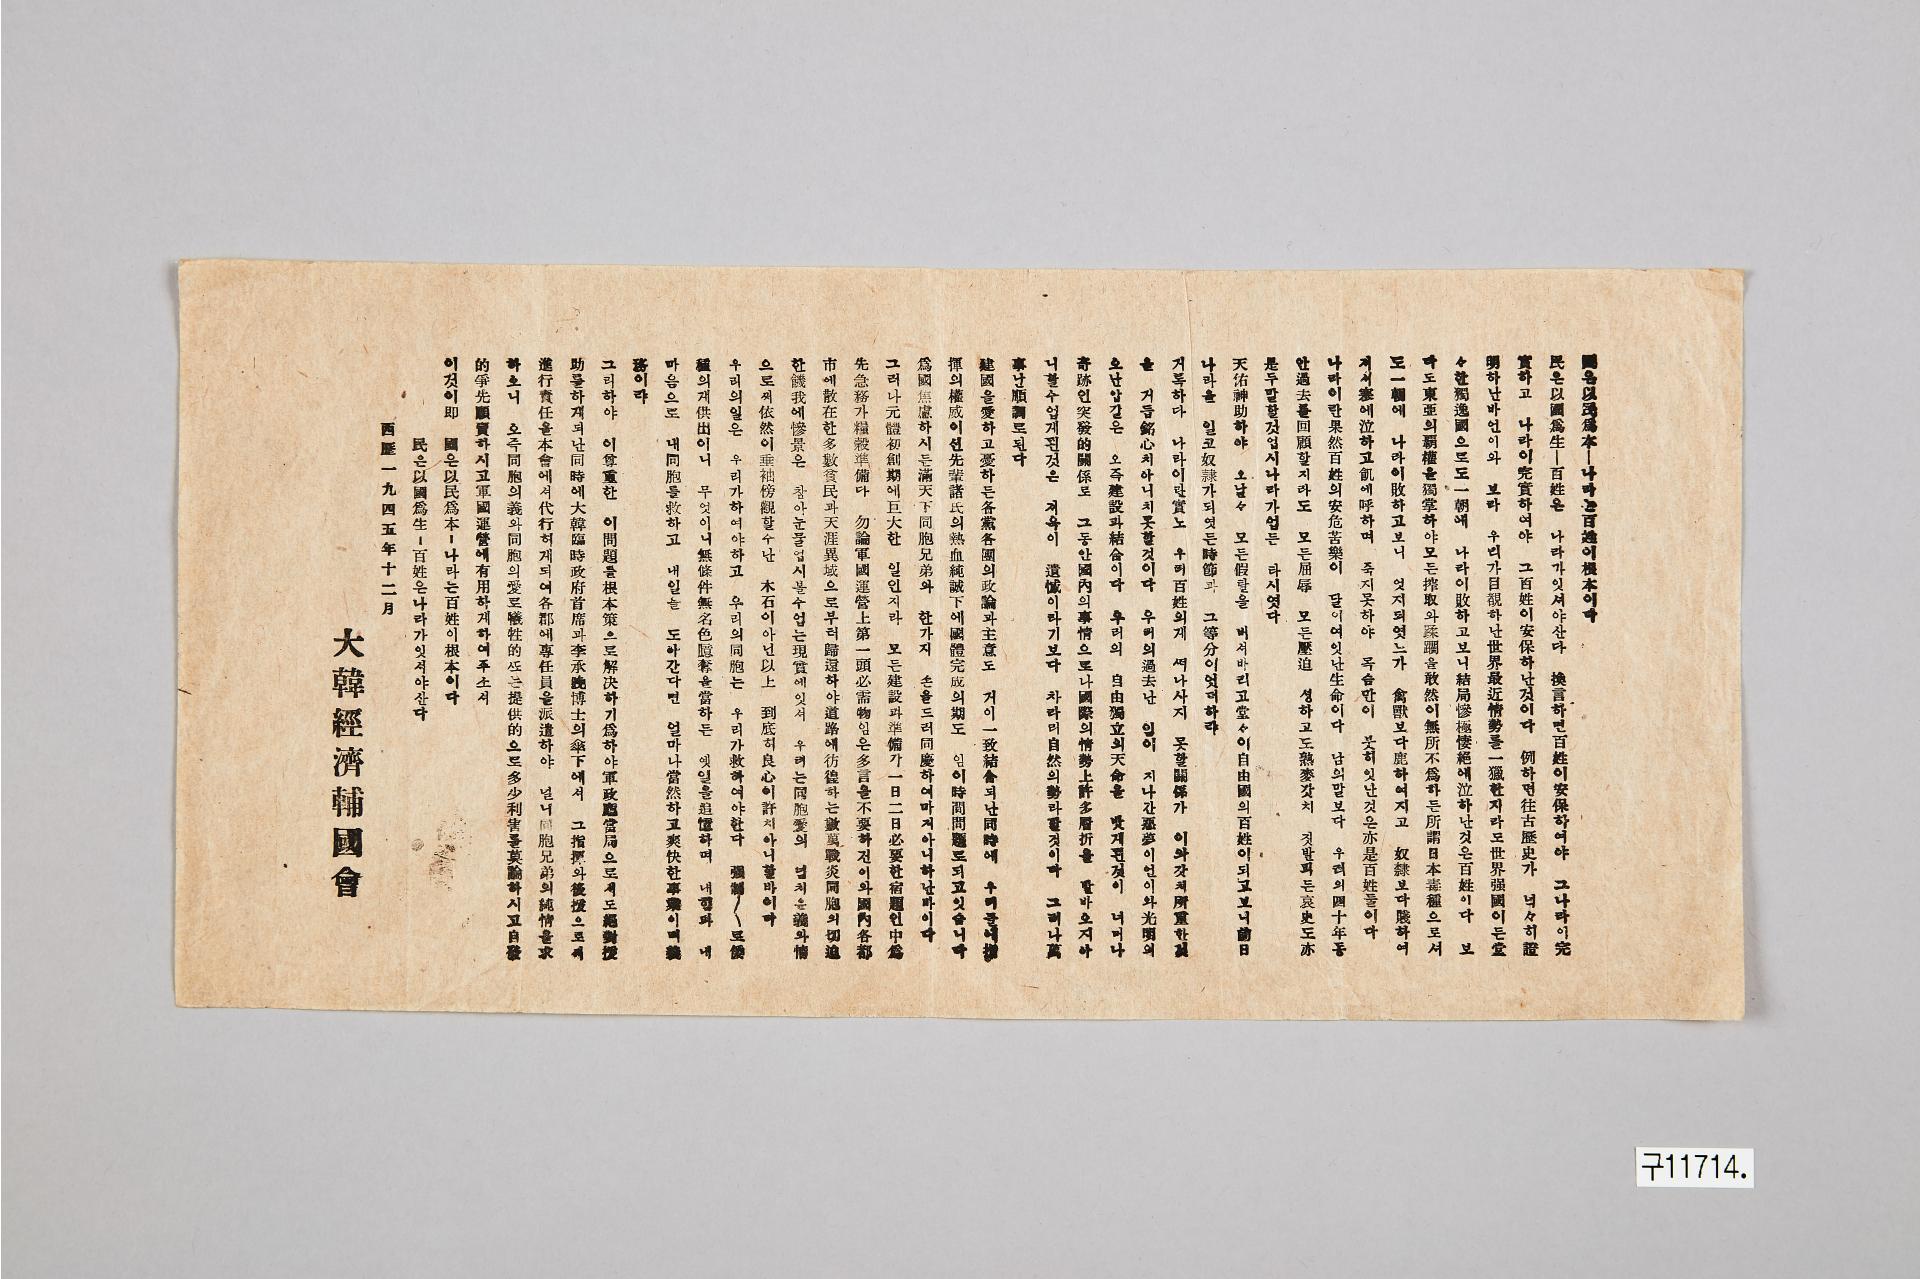 國은以民爲本—나라는百姓이根本이다
民은以國爲生—百姓은 나라가잇서야산다 換言하면百姓이安保하여야 그나라이完
實하고 나라이完實하여야 그百姓이安保하난것이다 例하면往古歷史가 넉々히證
明하난바언이와 보라 우리가目覩하난世界最近情勢를一獵한지라도世界强國이든堂
々한獨逸國으로도一朝에 나라이敗하고보니結局慘極悽絕에泣하난것은百姓이다 보
다도東亞의覇權을獨掌하야모든搾取와蹂躙을敢然이無所不爲하든所謂日本毒種으로셔
도一朝에 나라이敗하고보니 엇지되엿느가 禽獸보다鹿하여지고 奴隸보다賤하여
져셔寒에泣하고飢에呼하며 죽지못하야 목숨만이 붓허잇난것은亦是百姓들이다
나라이란果然百姓의安危苦樂이 달이여잇난生命이다 남의말보다 우리의四十年동
안過去를回顧할지라도 모든屈辱 모든壓迫 셩하고도熟麥갓치 짓발피든哀史도亦
是두말할것업시나라가업든 타시엿다
天佑神助하야 오날々 모든假탈을 버셔바리고堂々이自由國의百姓이되고보니前日
나라을 일코奴隸가되엿든時節과 그等分이엇더하랴
거룩하다 나라이란實노 우리百姓의게 떠나사지 못할關係가 이와갓치所重한것
을 거듭銘心치아니치못할것이다 우리의過去난 임이 지나간惡夢이언이와光明의
오난압길은 오즉建設과結合이다 우리의 自由獨立의天命을 밧게된것이 너머나
奇跡인突發的關係로 그동안國內의事情으로나國際의情勢上許多層折을 발바오지아
니할수업게된것은 져윽이 遺憾이라기보다 차라리自然의勢라할것이다 그러나萬
事난順調로된다
建國을愛하고憂하든各黨各團의政論과主意도 거이一致結合되난同時에 우리들에指
揮의權威이신先輩諸氏의熱血純誠下에國體完成의期도 임이時間問題로되고잇슴니다
爲國焦慮하시든滿天下同胞兄弟와 한가지 손을드러同慶하여마져아니하난바이다
그러나元體初創期에巨大한 일인지라 모든建設과準備가一日二日必要한宿題인中爲
先急務가糧穀準備다 勿論軍國運營上第一頭必需物임은多言을不要하전이와國內各都
市에散在한多數貧民과天涯異域으로부터歸還하야道路에彷徨하는數萬戰災同胞의切迫
한饑我에慘景은 참아눈물업시볼수업는現實에잇셔 우려는同胞愛의 넘치운義와情
으로써依然이垂袖傍觀할수난 木石이아닌以上 到底히良心이許치아니할바이다
우리의일은 우리가하여야하고 우리의同胞는 우리가救하여야한다 强制〳〵로倭
種의게供出이니 무엇이니無條件無名色臆奪을當하든 옛일을追憶하며 내힘과 내
마음으로 내同胞를救하고 내일을 도아간다면 얼마나當然하고爽快한事業이며義
務이랴
그리하야 이尊重한 이問題를根本策으로解決하기爲하야軍政廳當局으로셔도絕對援
助를하게되난同時에大韓臨時政府首席과李承晩博士의傘下에셔 그指揮와後援으로셔
進行責任을本會에셔代行허게되여各郡에專任員을派遣하야 널니同胞兄弟의純情을求
하오니 오즉同胞의義와同胞의愛로犧牲的또는提供的으로多少利害를莫論하시고自發
的爭先願賣하시고軍國運營에有用하게하여주소셔
이것이即 國은以民爲本—나라는百姓이根本이다
民은以國爲生—百姓은나라가잇셔야산다
西歷一九四五年十二月
大韓經濟輔國會
구11714.